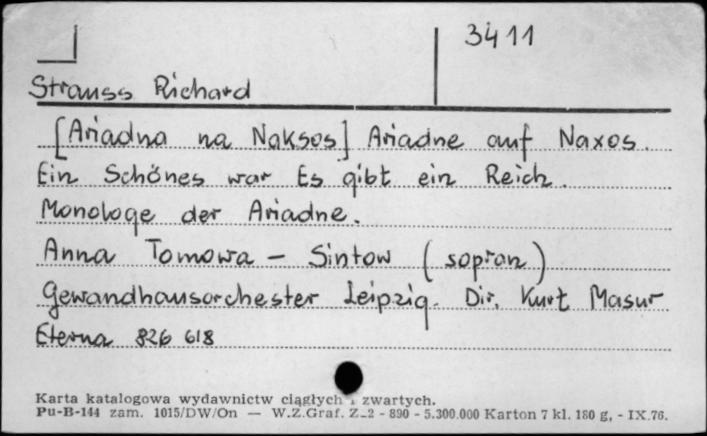 3411
Strauss Richard
[Ariadna na Naksos] Ariadne auf Naxos.
Ein Schönes war Es gibt ein Reich.
Monologe der Ariadne.
Anna Tomowa - Sintow (sopran)
Gewandhausorchester Leipzig. Dir. Kurt Masur
Eterna 826 618
Karta katalogowa wydawnictw ciągłych i zwartych.
Pu-B-144 zam. 1015/DW/On — W.Z.Graf. Z-2 - 890 - 5.300.000 Karton 7 kl. 180 g, - IX.76.